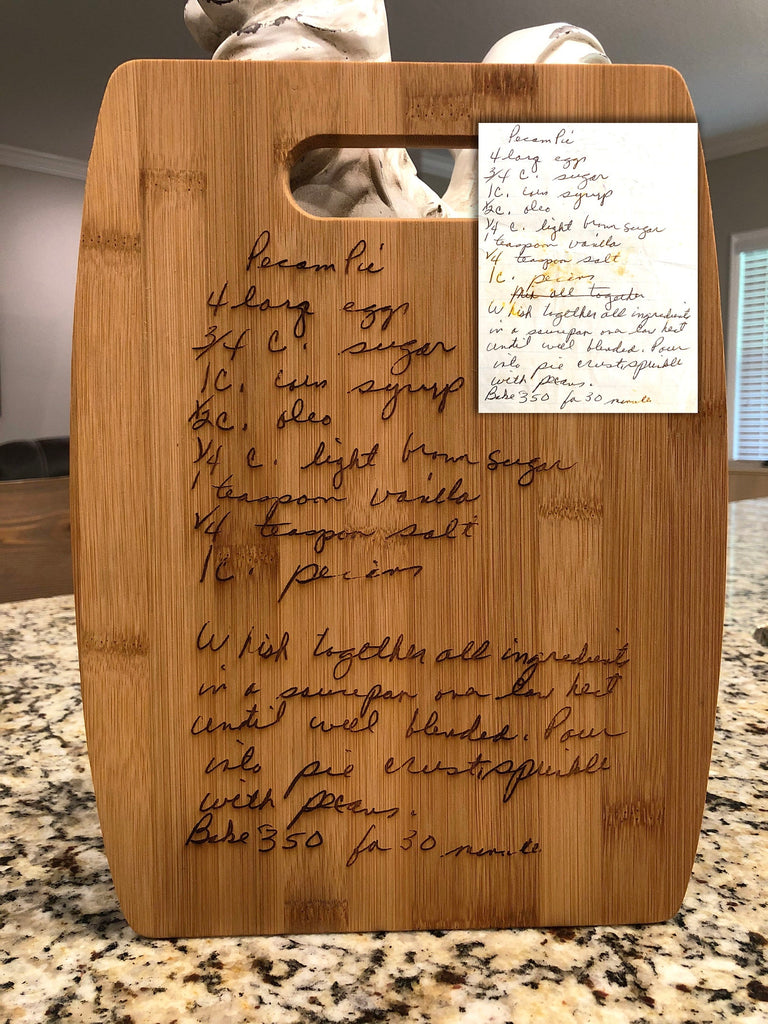 Pecam Pie
4 larg eggs
3/4 c. sugar
1c. corn syrup
1/2c. oleo
1/4 c. light brown sugar
1 teaspoon vanilla
1/4 teaspoon salt
1c. pecans
Whish together all ingredients
in a saucepan over low heat
until well blended. Pour
into pie crust, sprinkle
with pecans.
Bake 350 for 30 minute
Pecam Pie
4 larg eggs
3/4 c. sugar
1c. corn syrup
1/2c. oleo
1/4 c. light brown sugar
1 teaspoon vanilla
1/4 teaspoon salt
1c. pecans
Mix all together
Whish together all ingredients
in a saucepan over low heat
until well blended. Pour
into pie crust, sprinkle
with pecans.
Bake 350 for 30 minute